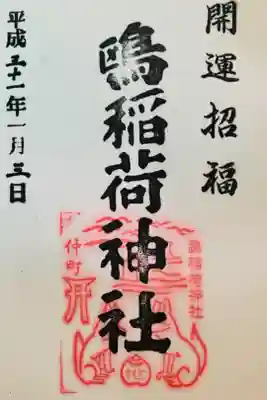 開運招福
鴎稲荷神社
平成三十一年一月三日
仲町
鴎稲荷神社